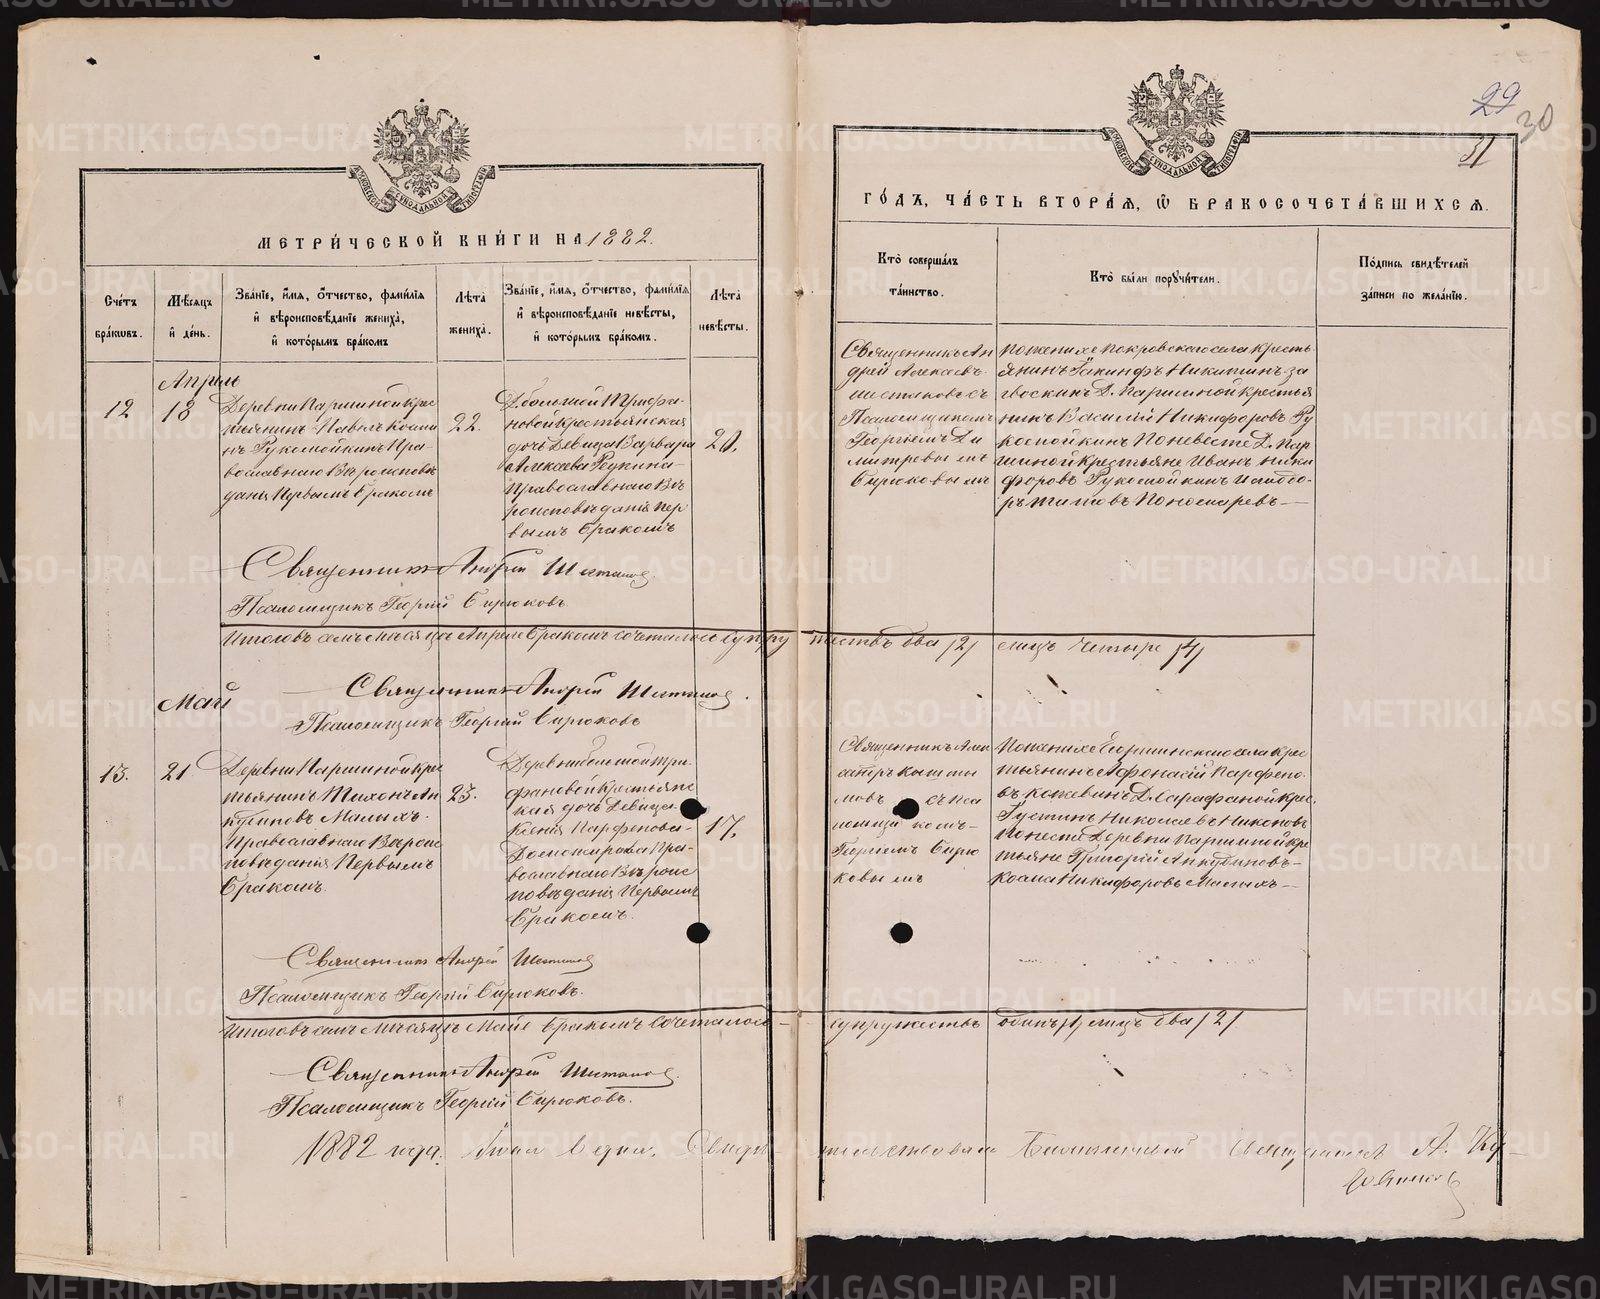 29
30
31
МЕТРИ́ЧЕСКОЙ КНИ́ГИ НА 1882.
ГО́ДЪ, ЧА́СТЬ ВТОРА́Я, Ѡ БРАКОСОЧЕТА́ВШИХСЯ.
Сче́тъ бра́кѡвъ.
Мѣ́сяцъ и҆ де́нь.
Зва́нїе, и҆́мя, ѻ҆́тчество, фами́лїя и҆ вѣроисповѣ́данїе жениха̀, и҆ кото́рымъ бра́комъ
Лѣ́та жениха̀.
Зва́нїе, и҆́мя, ѻ҆́тчество, фами́лїя и҆ вѣроисповѣ́данїе невѣ́сты, и҆ кото́рымъ бра́комъ.
Лѣ́та невѣ́сты.
Кто̀ соверша́лъ та́инство.
Кто̀ бы́ли порꙋчи́тели.
По́дпись свидѣ́телей за́писи по жела́нїю.
Апрель
12
18
Деревни Паршиной крес
тьянинъ Павелъ Косми
нъ Рукомойкинъ Пра-
вославнаго Вѣроисповѣ
данія Первымъ бракомъ
22.
Д. большой Трифа-
новой крестьянская
дочь Девица Варвара
Алексѣева Реукина
Православнаго Вѣ
роисповѣданія пер
вымъ бракомъ
20,
Священникъ Ан
дрей Алексѣевъ
Шестаковъ съ
Псаломщикомъ
Георгіемъ Ди
митревымъ
Бирюковымъ
По женихе Покровскаго села кресть
янинъ Іакинфъ Никитинъ за
гвоскинъ Д. Паршиной крестья
нинъ Василій Никифоровъ Ру
комойкинъ По невесте Д. Пар
шиной крестьяне Иванъ Ники
форовъ Рукомойкинъ и Ѳедо-
ръ Пономаревъ
Священникъ Андрей Шестаковъ
Псаломщикъ Георгій Бирюковъ.
Итого въ семъ месяце Апреле бракомъ сочеталось супру жествъ два /2/ лицъ четыре /4/
Священникъ Андрей Шестаковъ.
Псаломщикъ Георгій Бирюковъ
Май
13.
21
Деревни Паршиной кре
стьянинъ Тихонъ Ан
кудиновъ Малыхъ
Православнаго Вѣрои
сповѣданія Первымъ
бракомъ.
23.
Деревни большой Три
фановой крестьянс
кая дочь Девица
Ксенія Парфенова
Православнаго Вѣроис
повѣданія Первымъ
бракомъ.
17,
Священникъ
съ пса
ломщикомъ
Георгіемъ Бирю
ковымъ
По женихе Егоршинскаго села крес
тьянинъ Афонасій Парфено-
въ кожевинъ Д. Сарафаной крес.
Густинъ Николаевъ Никоновъ
По невесте Деревни Паршиной кре
стьяне Григорій Анкудиновъ
Косма Никифоровъ Малыхъ
Священникъ Андрей Шестаковъ
Псаломщикъ Георгій Бирюковъ.
Итого въ семъ Месяцѣ Майе бракомъ Сочеталось супружествъ одинъ /1/ лицъ два /2/
Священникъ Андрей Шестаковъ.
Псаломщикъ Георгій Бирюковъ.
1882 года. Іюня дня. Свидѣ тельствовалъ Благочинный Священникъ А. Ку-
METRIKI.GASO-URAL.RU